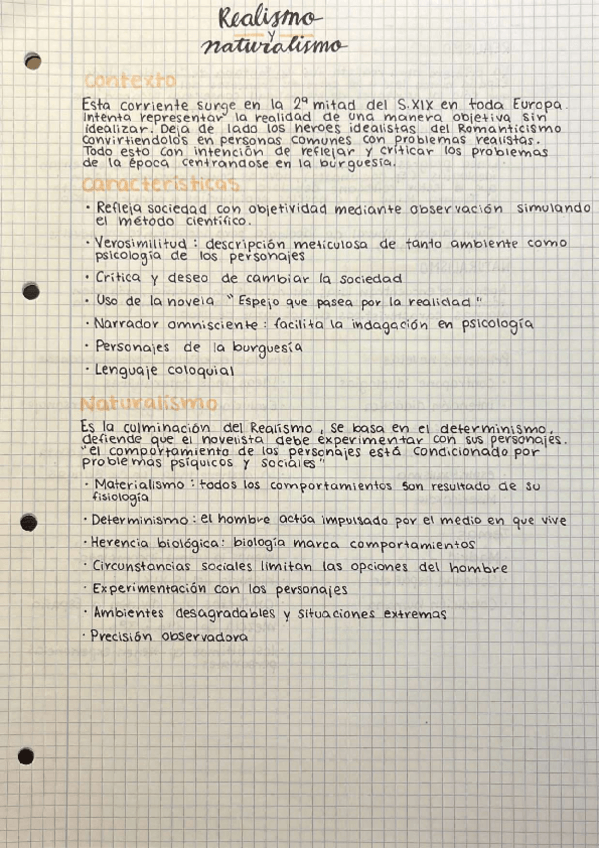 Realismo
y
naturalismo
Contexto
Esta corriente surge en la 2ª mitad del S.XIX en toda Europa.
Intenta representar la realidad de una manera objetiva sin
idealizar. Deja de lado los heroes idealistas del Romanticismo
convirtiendolos en personas comunes con problemas realistas.
Todo esto con intención de reflejar y criticar los problemas
de la época centrandose en la burguesía.
Características
· Refleja sociedad con objetividad mediante observación simulando
el método científico.
· Verosimilitud : descripción meticulosa de tanto ambiente como
psicología de los personajes
· Critica y deseo de cambiar la sociedad
· Uso de la novela "Espejo que pasea por la realidad"
· Narrador omnisciente : facilita la indagación en psicología
· Personajes de la burguesía
· Lenguaje coloquial
Naturalismo
Es la culminación del Realismo, se basa en el determinismo,
defiende que el novelista debe experimentar con sus personajes.
"el comportamiento de los personajes está condicionado por
problemas psíquicos y sociales"
· Materialismo : todos los comportamientos son resultado de su
fisiología
· Determinismo : el hombre actúa impulsado por el medio en que vive
· Herencia biológica: biología marca comportamientos
· Circunstancias sociales limitan las opciones del hombre
· Experimentación con los personajes
· Ambientes desagradables y situaciones extremas
· Precisión observadora